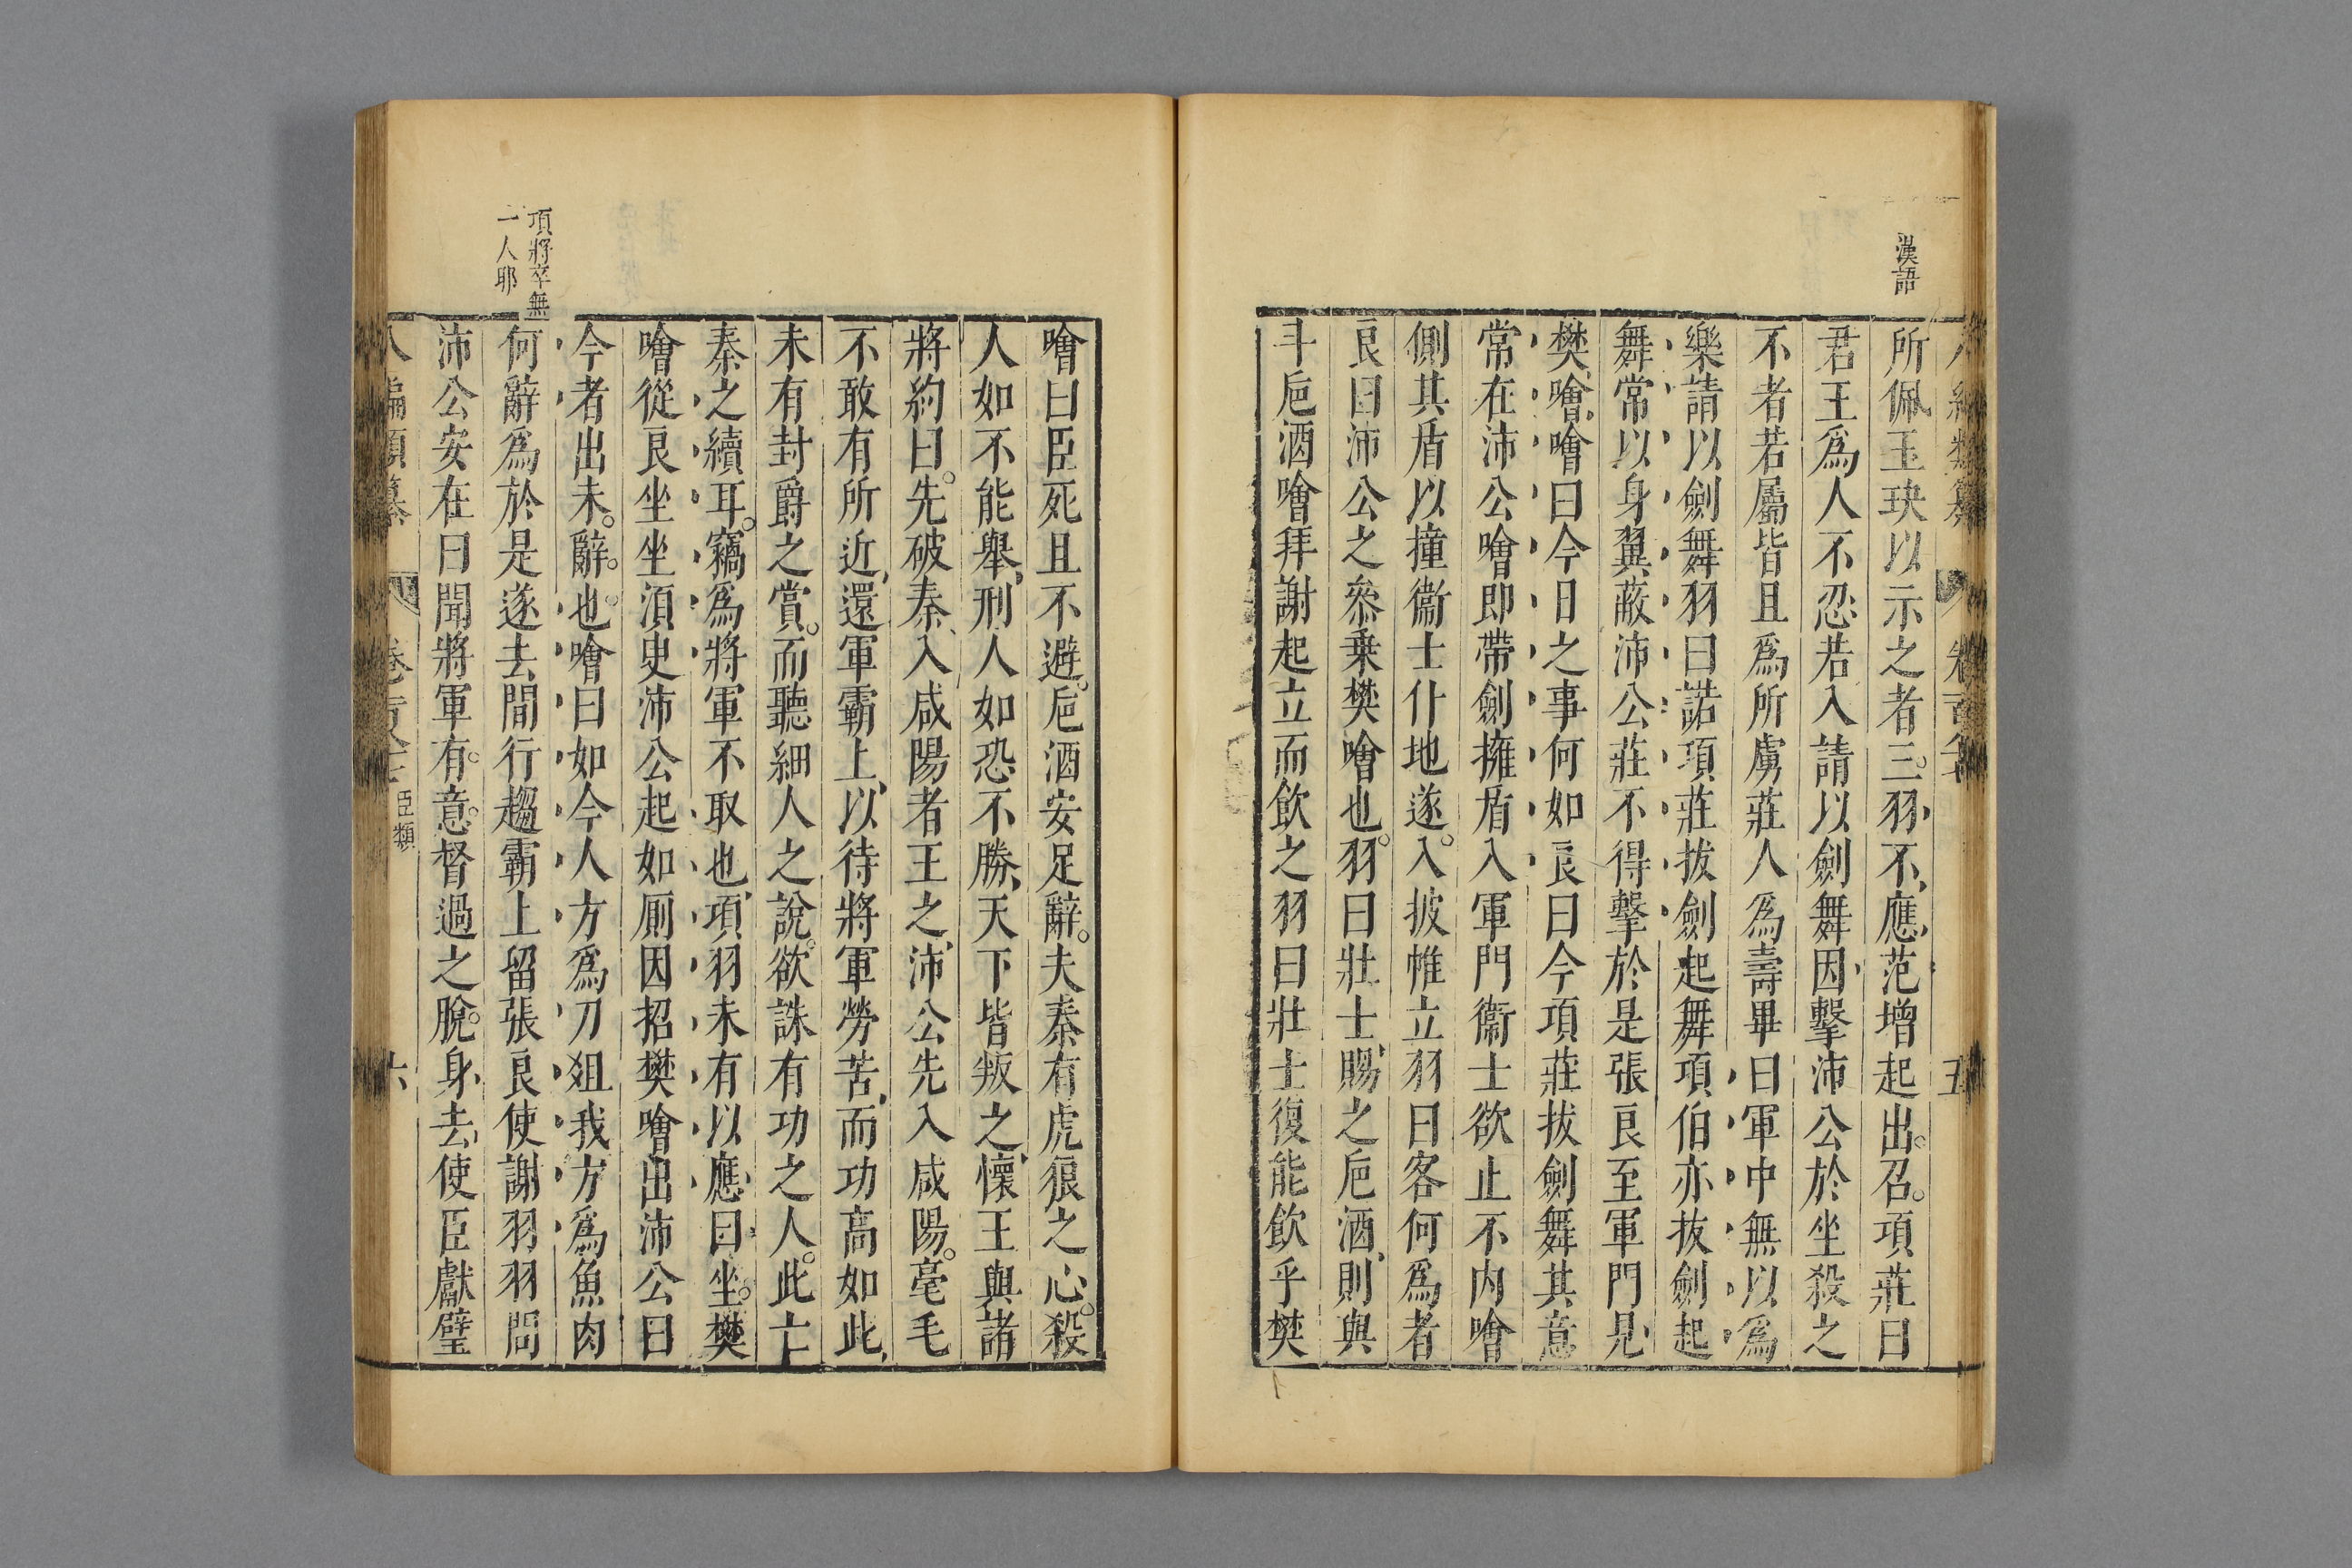 漢語
所佩玉玦以示之者三羽不應范增起出召項莊曰
君王爲人不忍若入請以劍舞因擊沛公於坐殺之
不者若屬皆且爲所虜莊入爲壽畢曰軍中無以爲
樂請以劍舞羽曰諾項莊拔劍起舞項伯亦拔劍起
舞常以身翼蔽沛公莊不得擊於是張良至軍門見
樊噲噲曰今日之事何如良曰今項莊拔劍舞其意
常在沛公噲即帶劍擁盾入軍門衞士欲止不内噲
側其盾以撞衞士仆地遂入披帷立羽曰客何爲者
良曰沛公之叅乗樊噲也羽曰壯士賜之巵酒則與
斗巵酒噲拜謝起立而飲之羽曰壯士復能飲乎樊
噲曰臣死且不避巵酒安足辭夫秦有虎狠之心殺
人如不能舉刑人如恐不勝天下皆叛之懷王與諸
將約曰先破秦入咸陽者王之沛公先入咸陽毫毛
不敢有所近還軍霸上以待將軍勞苦而功高如此
未有封爵之賞而聽細人之說欲誅有功之人此亡
秦之續耳竊爲將軍不取也項羽未有以應曰坐樊
噲從良坐坐湏史沛公起如厠因招樊噲出沛公曰
今者出未辭也噲曰如今人方爲刀俎我方爲魚肉
項將卒無
一人耶
何辭爲於是遂去間行趨霸上留張良使謝羽羽問
沛公安在曰聞將軍有意督過之脫身去使臣獻璧
臣類